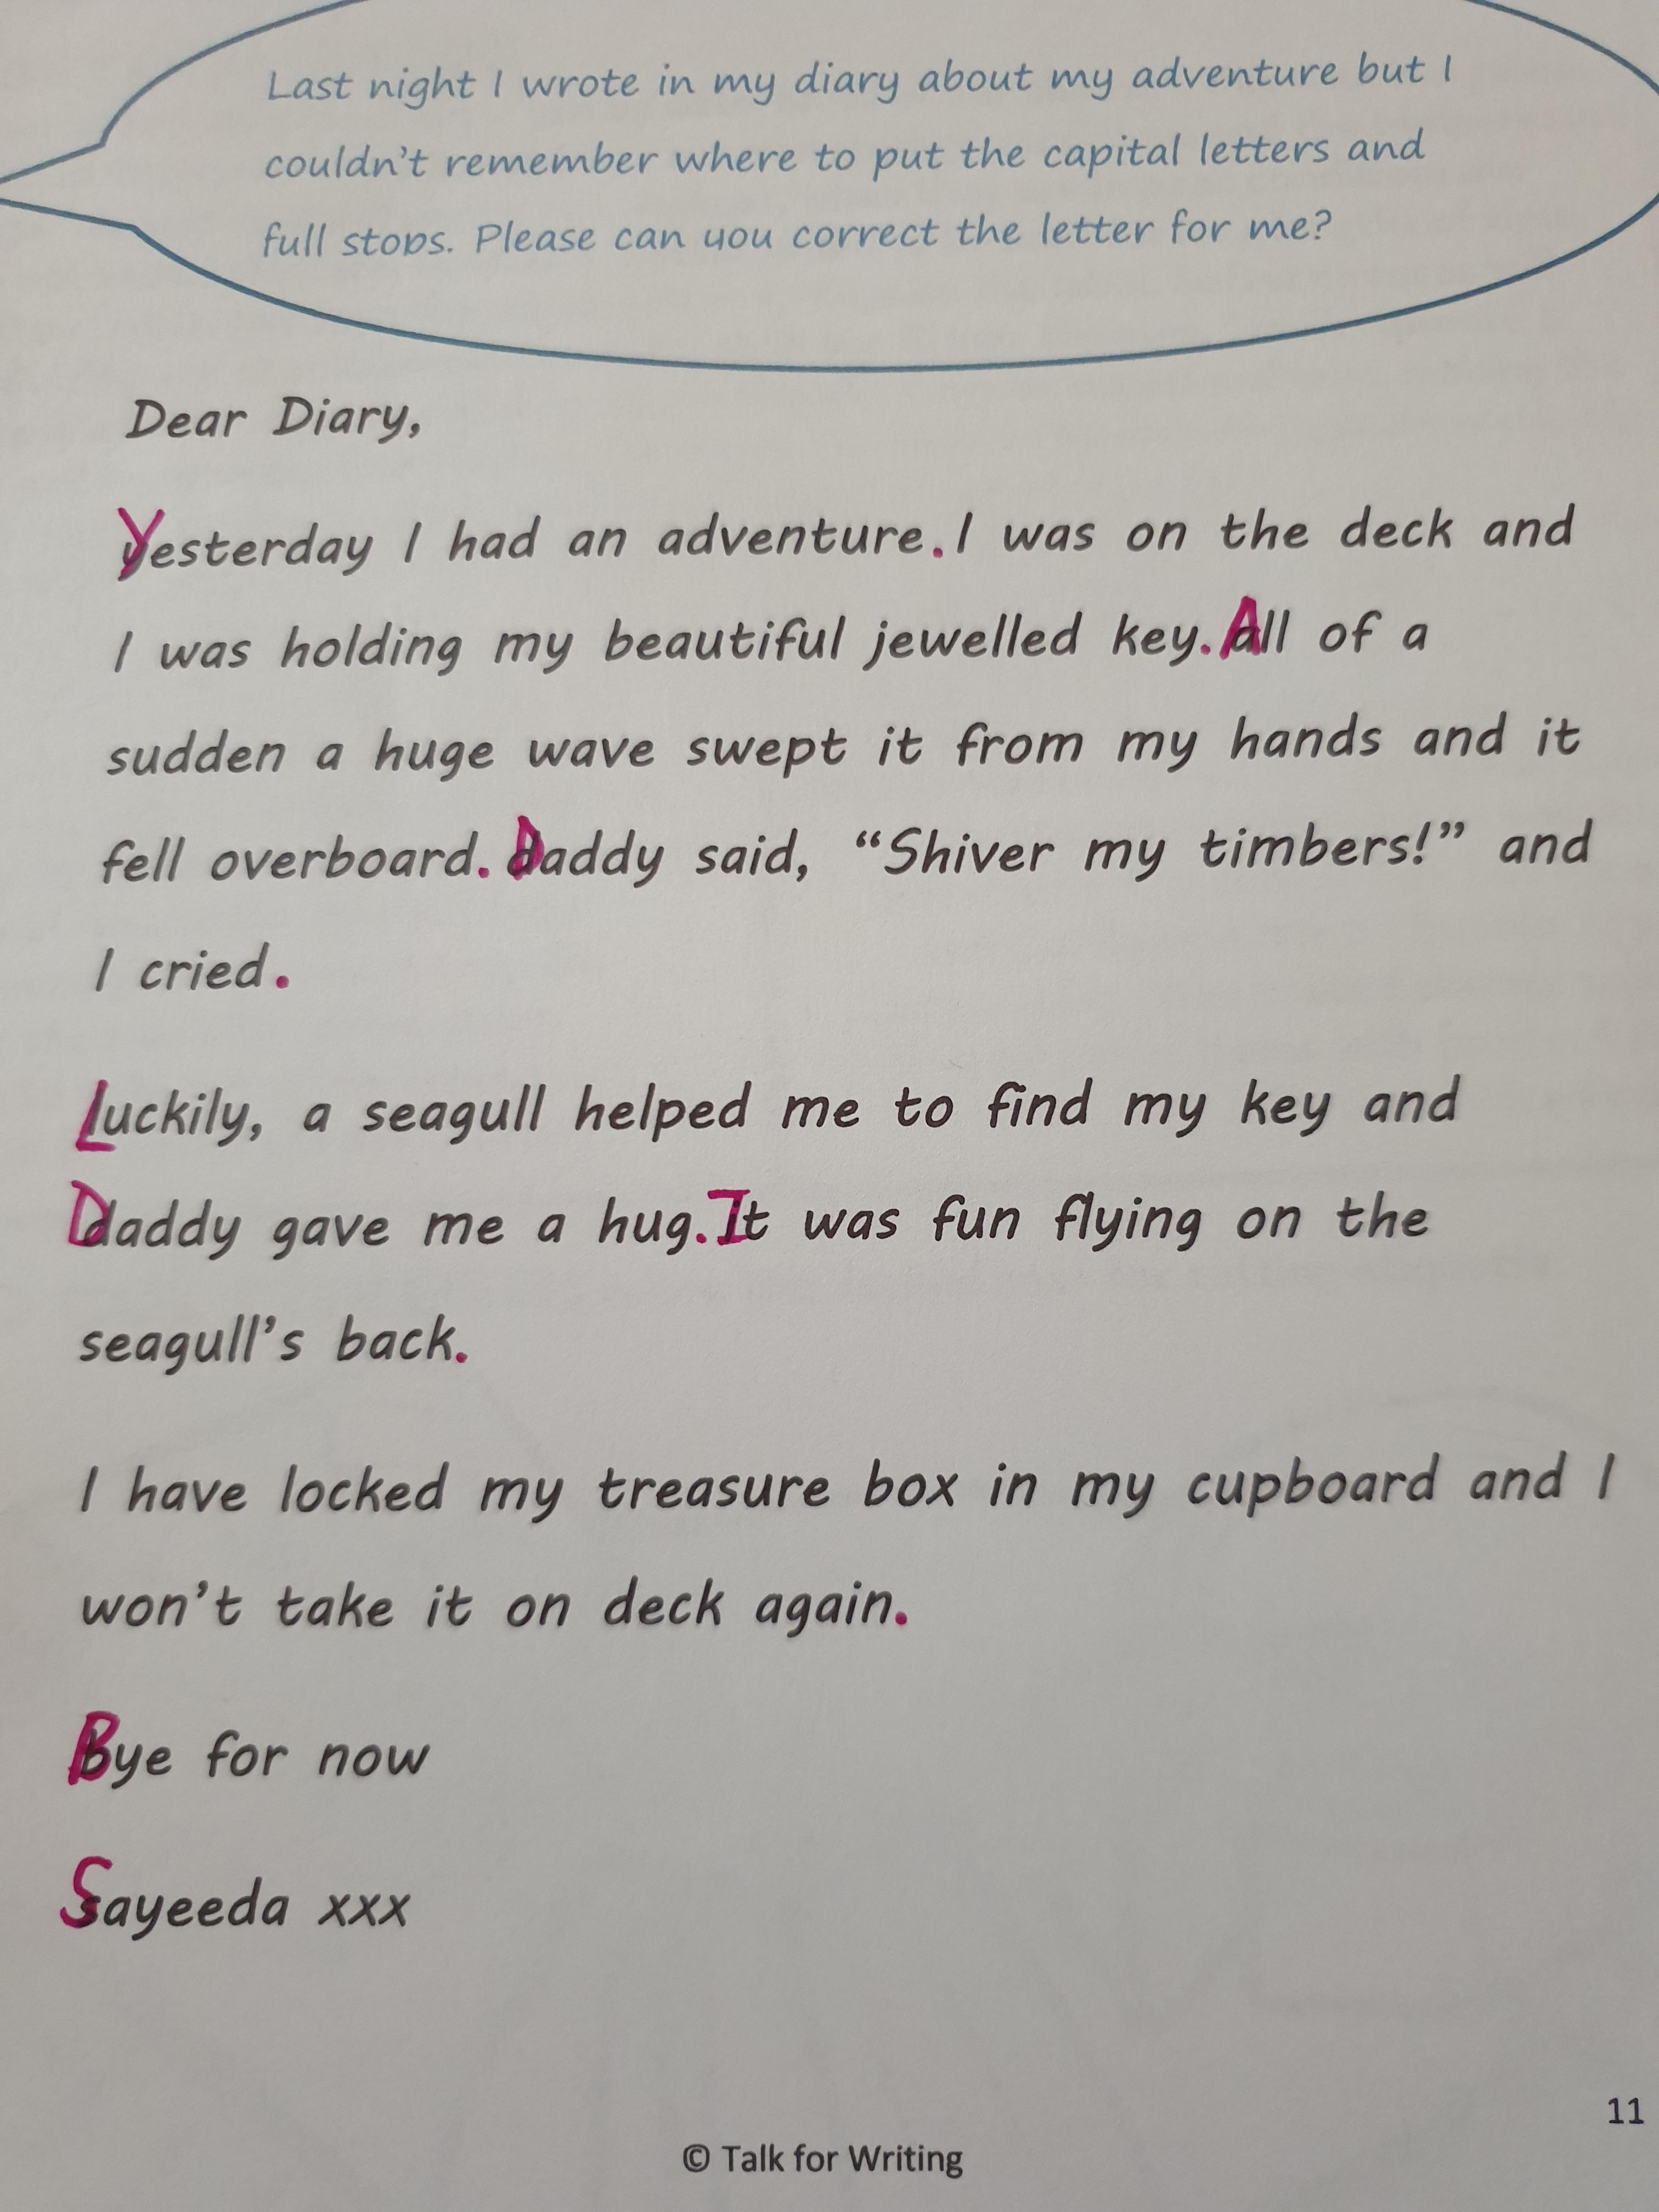 Last night I wrote in my diary about my adventure but I
couldn't remember where to put the capital letters and
full stops. Please can you correct the letter for me?
Dear Diary,
Yesterday I had an adventure. I was on the deck and
I was holding my beautiful jewelled key. All of a
sudden a huge wave swept it from my hands and it
fell overboard. Daddy said, “Shiver my timbers!” and
I cried.
Luckily, a seagull helped me to find my key and
Daddy gave me a hug. It was fun flying on the
seagull's back.
I have locked my treasure box in my cupboard and I
won't take it on deck again.
Bye for now
Sayeeda xxx
11
© Talk for Writing